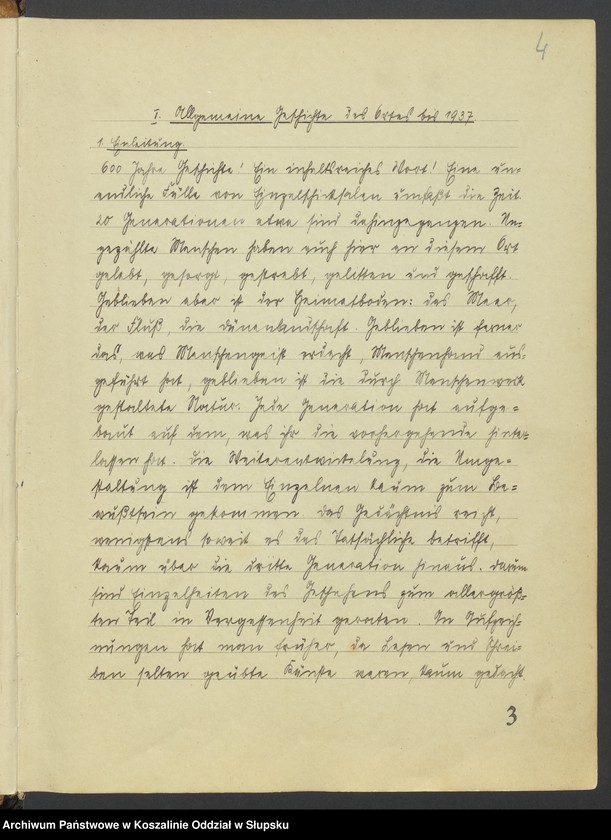 4
I. Allgemeine Geschichte des Ortes bis 1937
1. Einleitung.
600 Jahre Geschichte! Ein inhaltsreiches Wort! Eine un=
endliche Fülle von Einzelschicksalen umfaßt die Zeit.
20 Generationen etwa sind dahingegangen. Un=
gezählte Menschen haben auch hier an diesem Ort
gelebt, gesorgt, gestrebt, gelitten und geschafft.
Geblieben aber ist der Heimatboden: das Meer,
der Fluß, die Dünenlandschaft. Geblieben ist ferner
das, was Menschengeist erdacht, Menschenhand aus=
geführt hat, geblieben ist die durch Menschenwerk
gestaltete Natur. Jede Generation hat aufge=
baut auf dem, was ihr die vorhergehende hinter=
lassen hat. Die Weiterentwickelung, die Umge=
staltung ist dem Einzelnen kaum zum Be=
wußtsein gekommen. Das Gedächtnis reicht,
wenigstens soweit es das Tatsächliche betrifft,
kaum über die dritte Generation hinaus. Darum
sind Einzelheiten des Geschehens zum allergröß=
ten Teil in Vergessenheit geraten. An Aufzeich=
nungen hat man früher, da Lesen und Schrei=
ben selten geübte Künste waren, kaum gedacht.
3
Archiwum Państwowe w Koszalinie Oddział w Słupsku